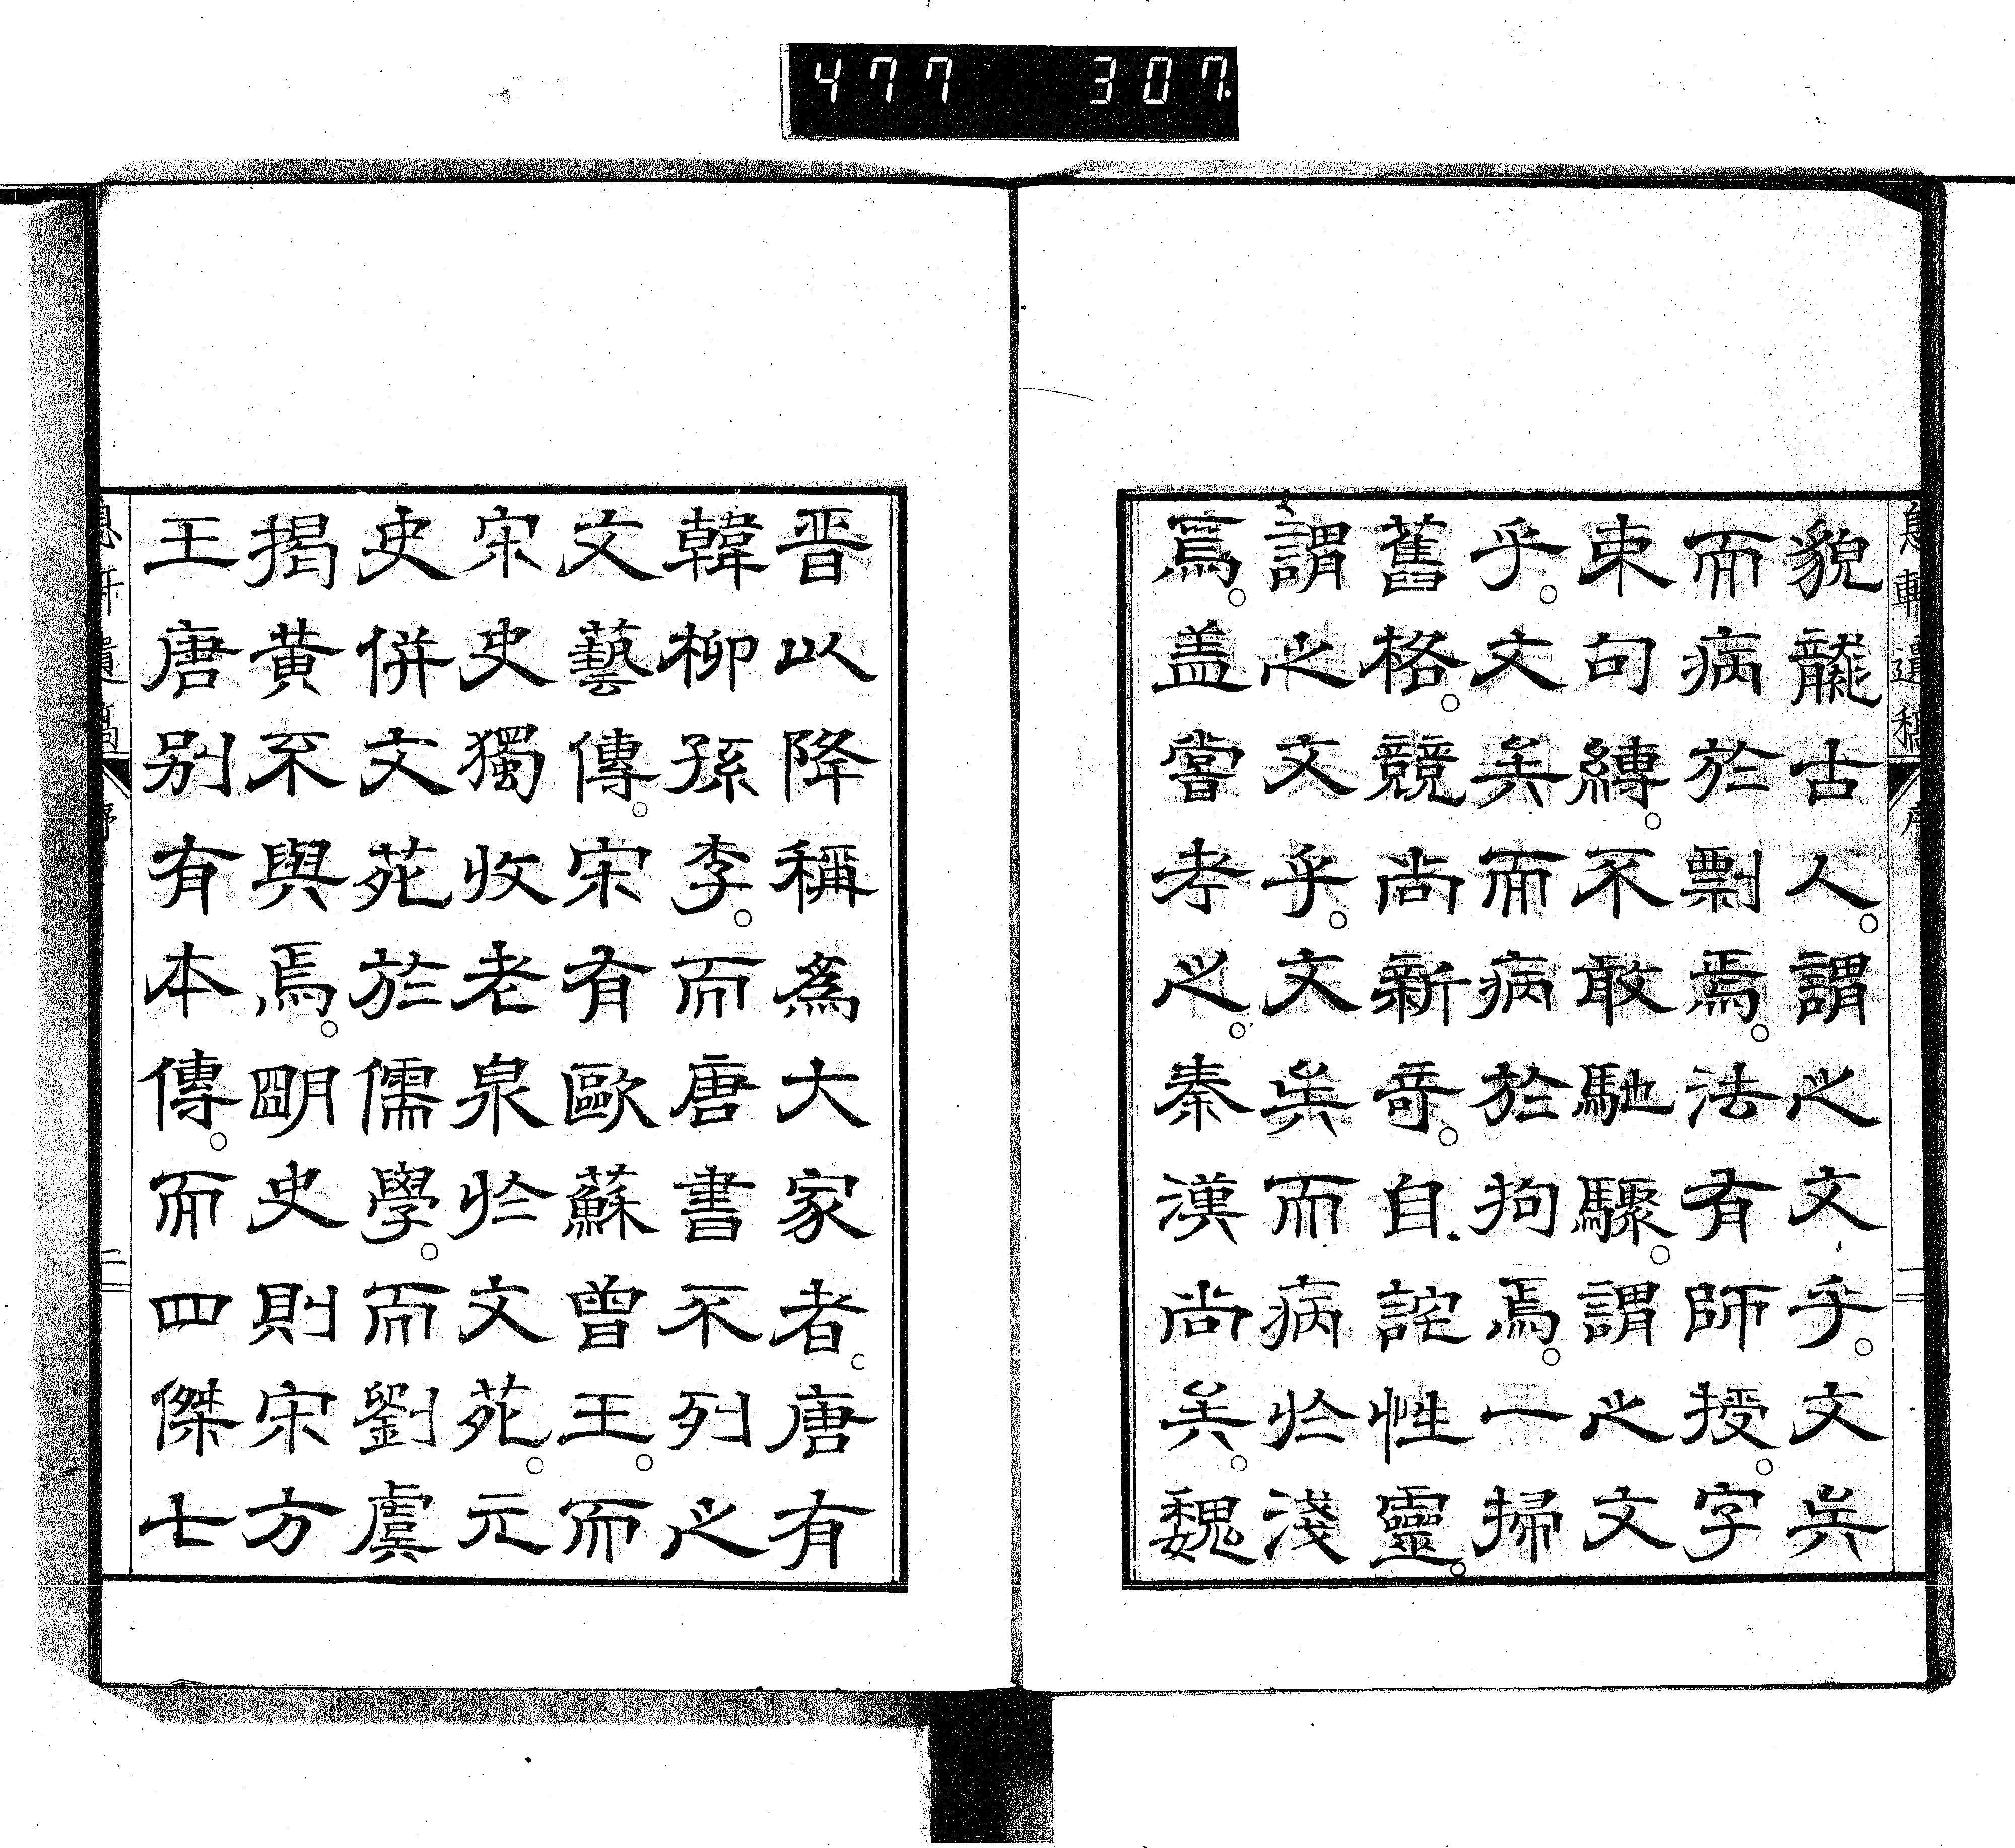 477 307
息軒遺稿 序 一
貌襲古人。謂之文乎。文矣
而病於剽焉。法有師授。字
束句縛。不敢馳驟。謂之文
乎。文矣而病於拘焉。一掃
舊格。競尚新奇。自詫性靈。
謂之文乎。文矣而病於淺
焉。盖嘗考之。秦漢尚矣。魏
晋以降稱爲大家者。唐有
韓柳孫李。而唐書不列之
文藝傳。宋有歐蘇曾王。而
宋史獨收老泉於文苑。元
史併文苑於儒學。而劉虞
揭黄不與焉。明史則宋方
王唐別有本傳。而四傑七
息軒遺稿 序 二